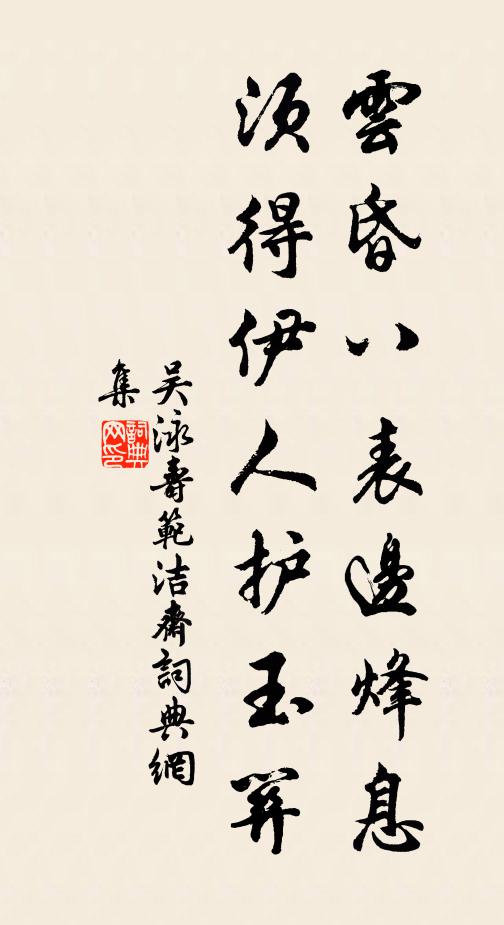 雲昏八表邊烽息
須得伊人护玉關
吴泳壽範洁齋詞典網
集
詞典網印